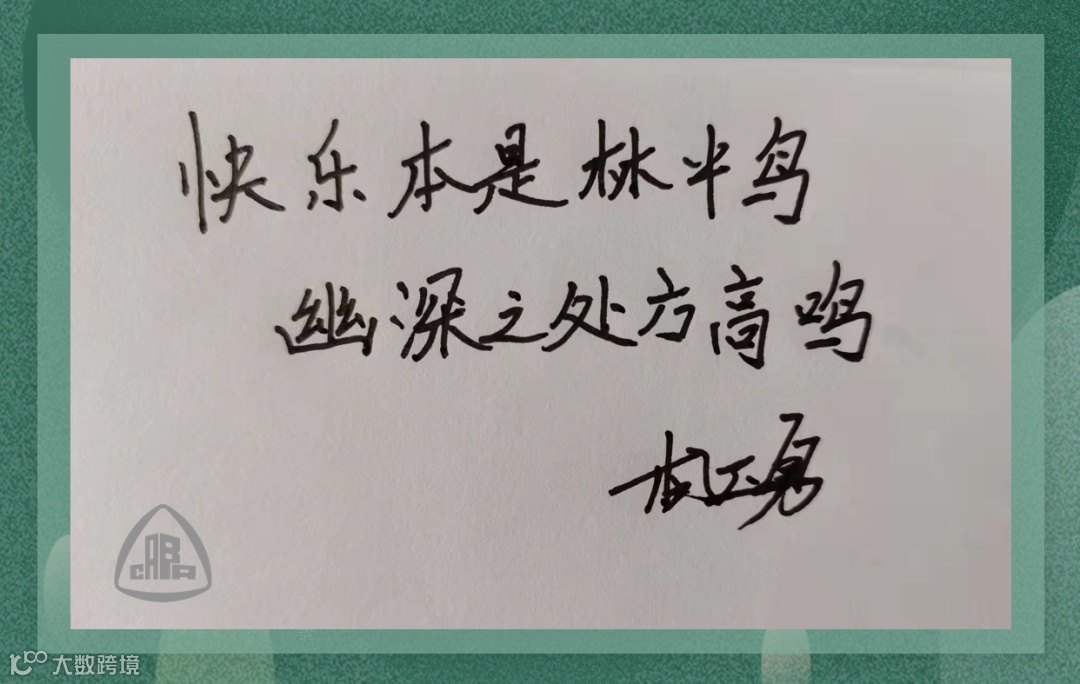 快乐本是林半鸟
幽深之处方高鸣
大数跨境